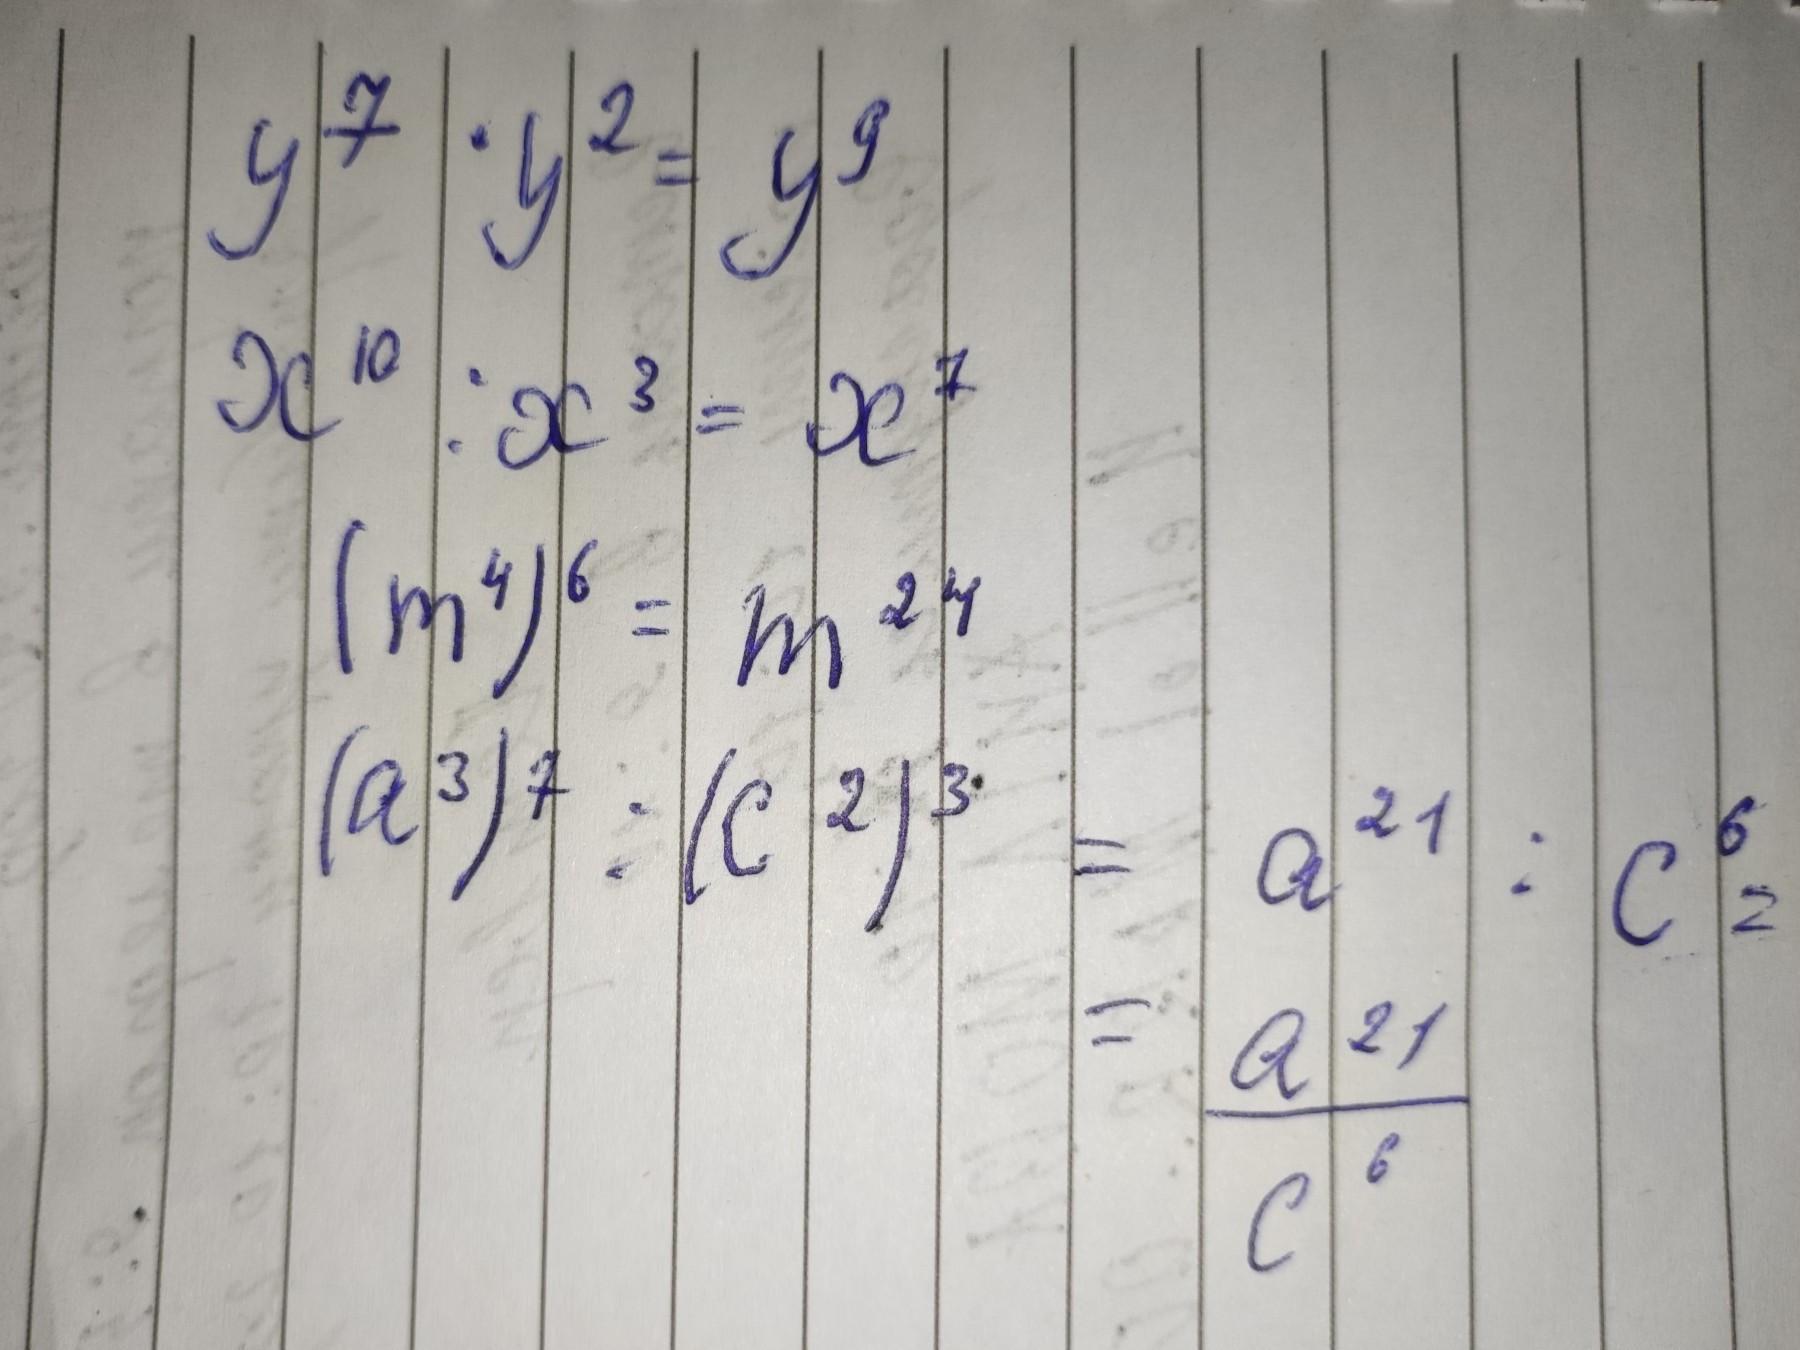 y⁷ · y² = y⁹
x¹⁰ : x³ = x⁷
(m⁴)⁶ = m²⁴
(a³)⁷ : (c²)³ = a²¹ : c⁶ =
= a²¹/c⁶